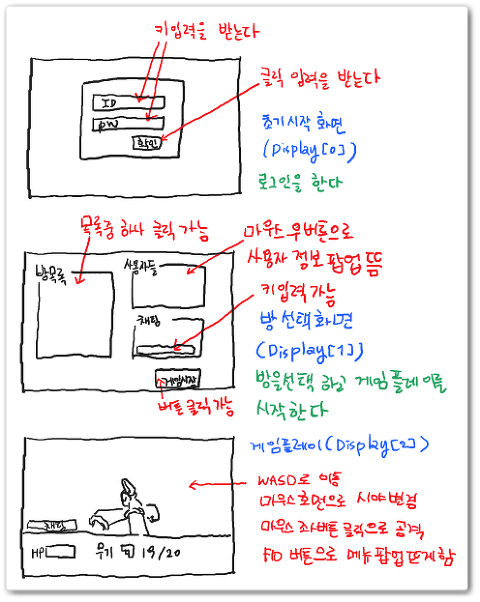 키입력을 받는다
ID
PW
확인
클릭 입력을 받는다
초기시작 화면
(Display[0])
로그인을 한다
목록중 하나 클릭 가능
방목록
사용자들
채팅
게임시작
버튼 클릭 가능
마우스 우버튼으로
사용자 정보 팝업 뜸
키입력 가능
방 선택화면
(Display[1])
방을선택 하고 게임 플레이를
시작한다
게임플레이(Display[2])
채팅
HP
무기
19/20
WASD로 이동
마우스 화면으로 시야변경
마우스 좌버튼 클릭으로 공격
F10 버튼으로 메뉴 팝업 뜨게함